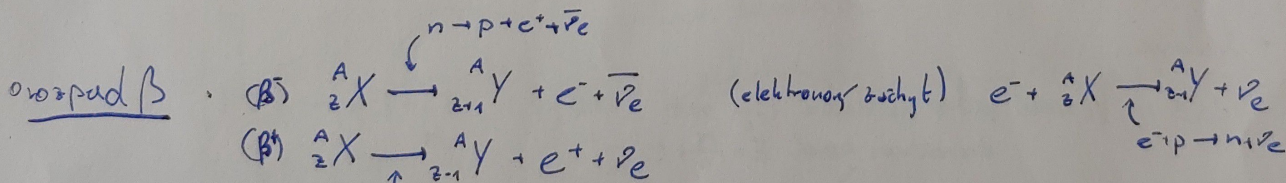 n → p + e⁺ + ν̄e
○ rozpad β . (β⁻) ᴬzX → ᴬz+1Y + e⁻ + ν̄e (elektronový záchyt) e⁻ + ᴬzX → ᴬz-1Y + νe
(β⁺) ᴬzX → ᴬz-1Y + e⁺ + νe e⁻+p → n+νe